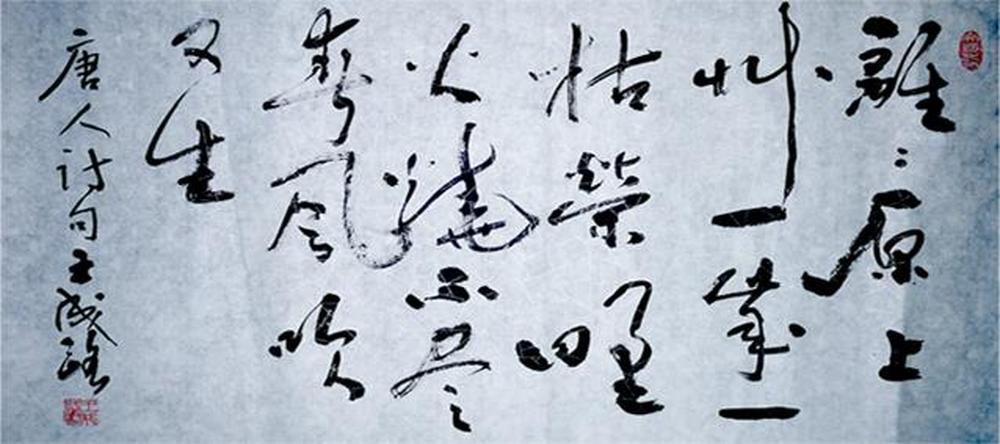 離〻原上
艸一歲一
枯榮野
火燒不盡
春風吹
又生
唐人詩句王成